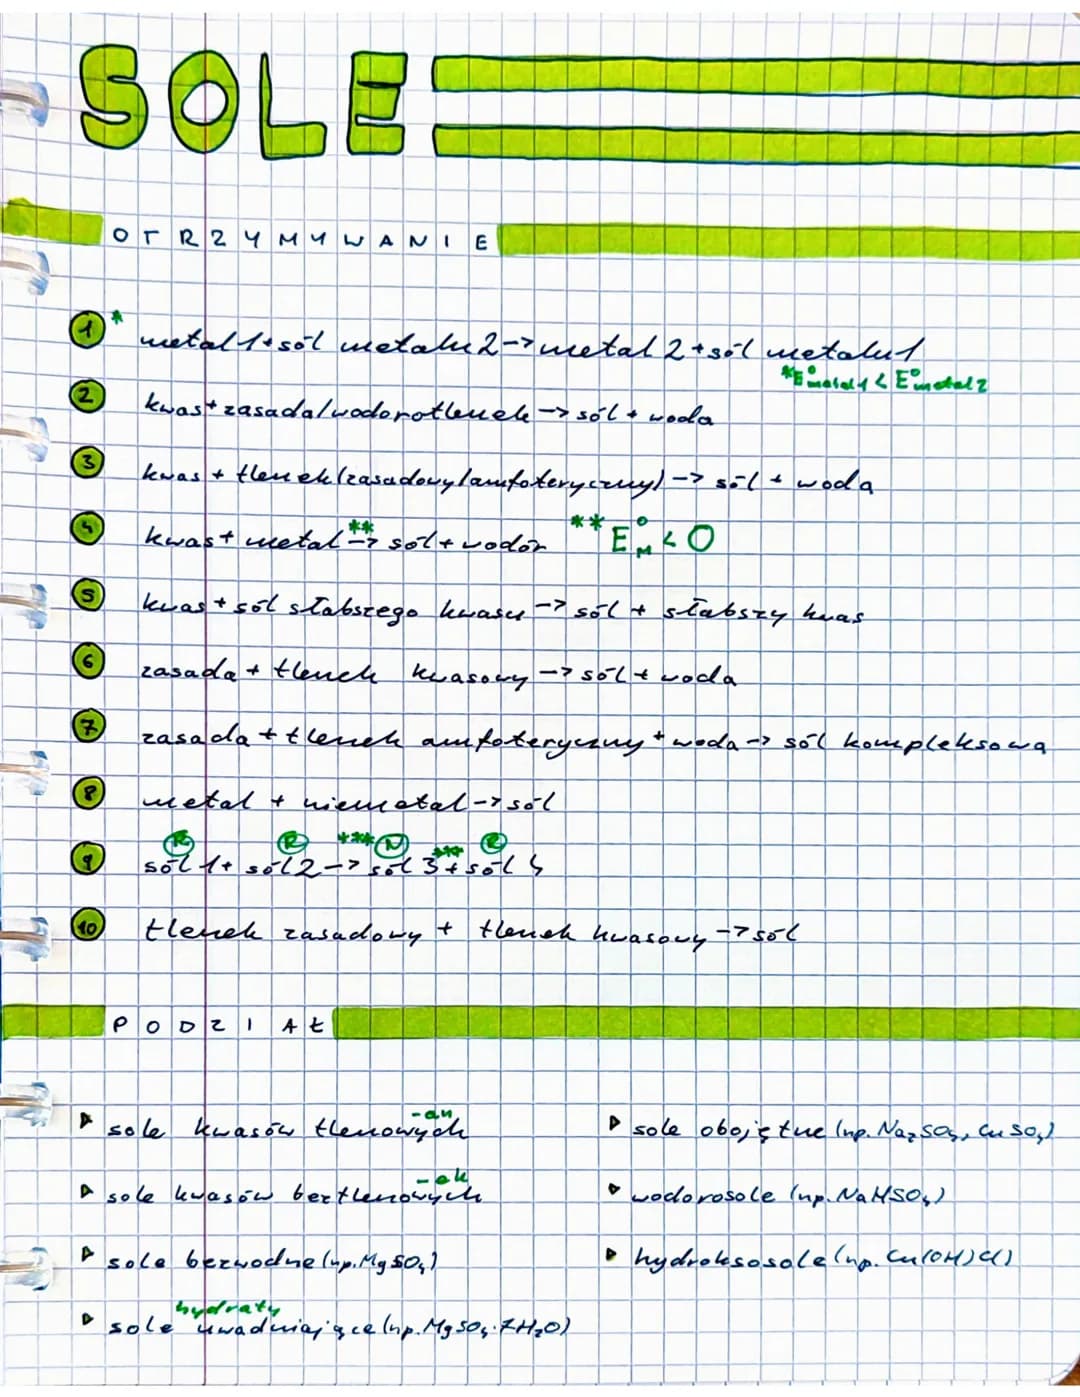 SOLE
OTRZYMYWANIE
1 * metal 1 + sól metalu 2 -> metal 2 + sól metalu 1
*E° metal 1 < E° metal 2
2 kwas + zasada/wodorotlenek -> sól + woda
3 kwas + tlenek (zasadowy/amfoteryczny) -> sól + woda
4 kwas + metal **-> sól + wodór **E°M < 0
5 kwas + sól słabszego kwasu -> sól + słabszy kwas
6 zasada + tlenek kwasowy -> sól + woda
7 zasada + tlenek amfoteryczny + woda -> sól kompleksowa
8 metal + niemetal -> sól
R R *** N *** R
9 sól 1 + sól 2 -> sól 3 + sól 4
10 tlenek zasadowy + tlenek kwasowy -> sól
PODZIAŁ
-an
▷ sole kwasów tlenowych
▷ sole obojętne (np. Na₂SO₄, CuSO₄)
-ek
▷ sole kwasów beztlenowych
▷ wodorosole (np. NaHSO₄)
▷ sole bezwodne (np. MgSO₄)
▷ hydroksosole (np. Cu(OH)Cl)
hydraty
▷ sole uwadniające (np. MgSO₄·7H₂O)